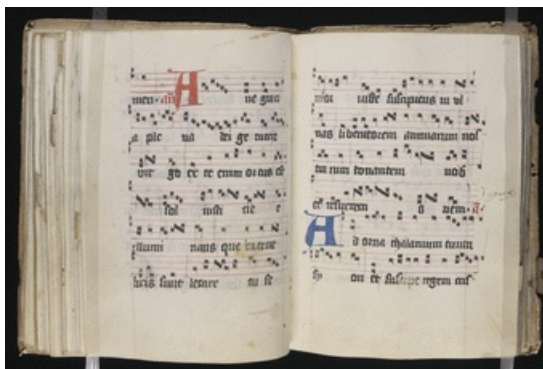 men. an A ue gra
a ple na dei ge nitrix
vir go ex te enim or tus est
sol iusti cie
illumi nans que in tene
bris sunt letare tu se
iuste suscipiens in ul
nas liberatorem animarum nos
trarum donantem nob
et resurrec
A d orna thalamum tuum
sy on et suscipe regem